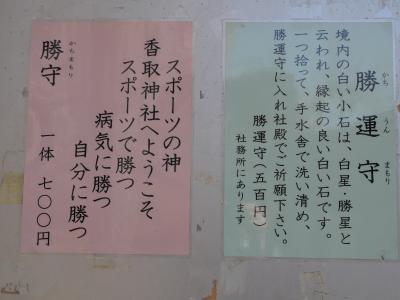 勝運守
かち うん まもり
境内の白い小石は、白星・勝星と
云われ、縁起の良い白い石です。
一つ拾って、手水舎で洗い清め、
勝運守に入れ社殿でご祈願下さい。
勝運守(五百円)
社務所にあります
スポーツの神
香取神社へようこそ
スポーツで勝つ
病気に勝つ
自分に勝つ
勝守
かちまもり
一体 七〇〇円